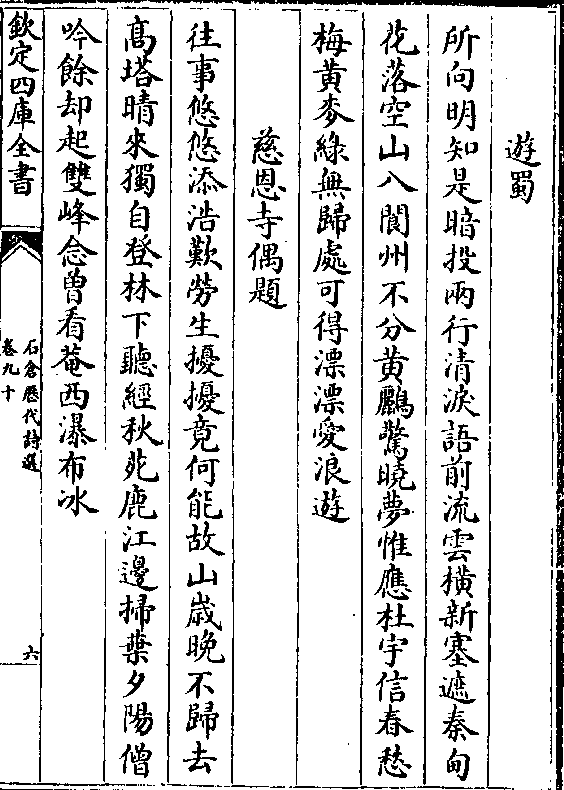 遊蜀
所向明知是暗投兩行清淚語前流雲橫新塞遮秦甸
花落空山入閬州不分黄鸝驚曉夢惟應杜宇信春愁
梅黄麥綠無歸處可得漂漂愛浪遊
慈恩寺偶題
往事悠悠添浩歎勞生擾擾竟何能故山歳晚不歸去
髙塔晴來獨自登林下聽經秋苑鹿江邊掃葉夕陽僧
吟餘却起雙峰念曾看菴西瀑布冰
欽定四庫全書
石倉歷代詩選
卷九十
六